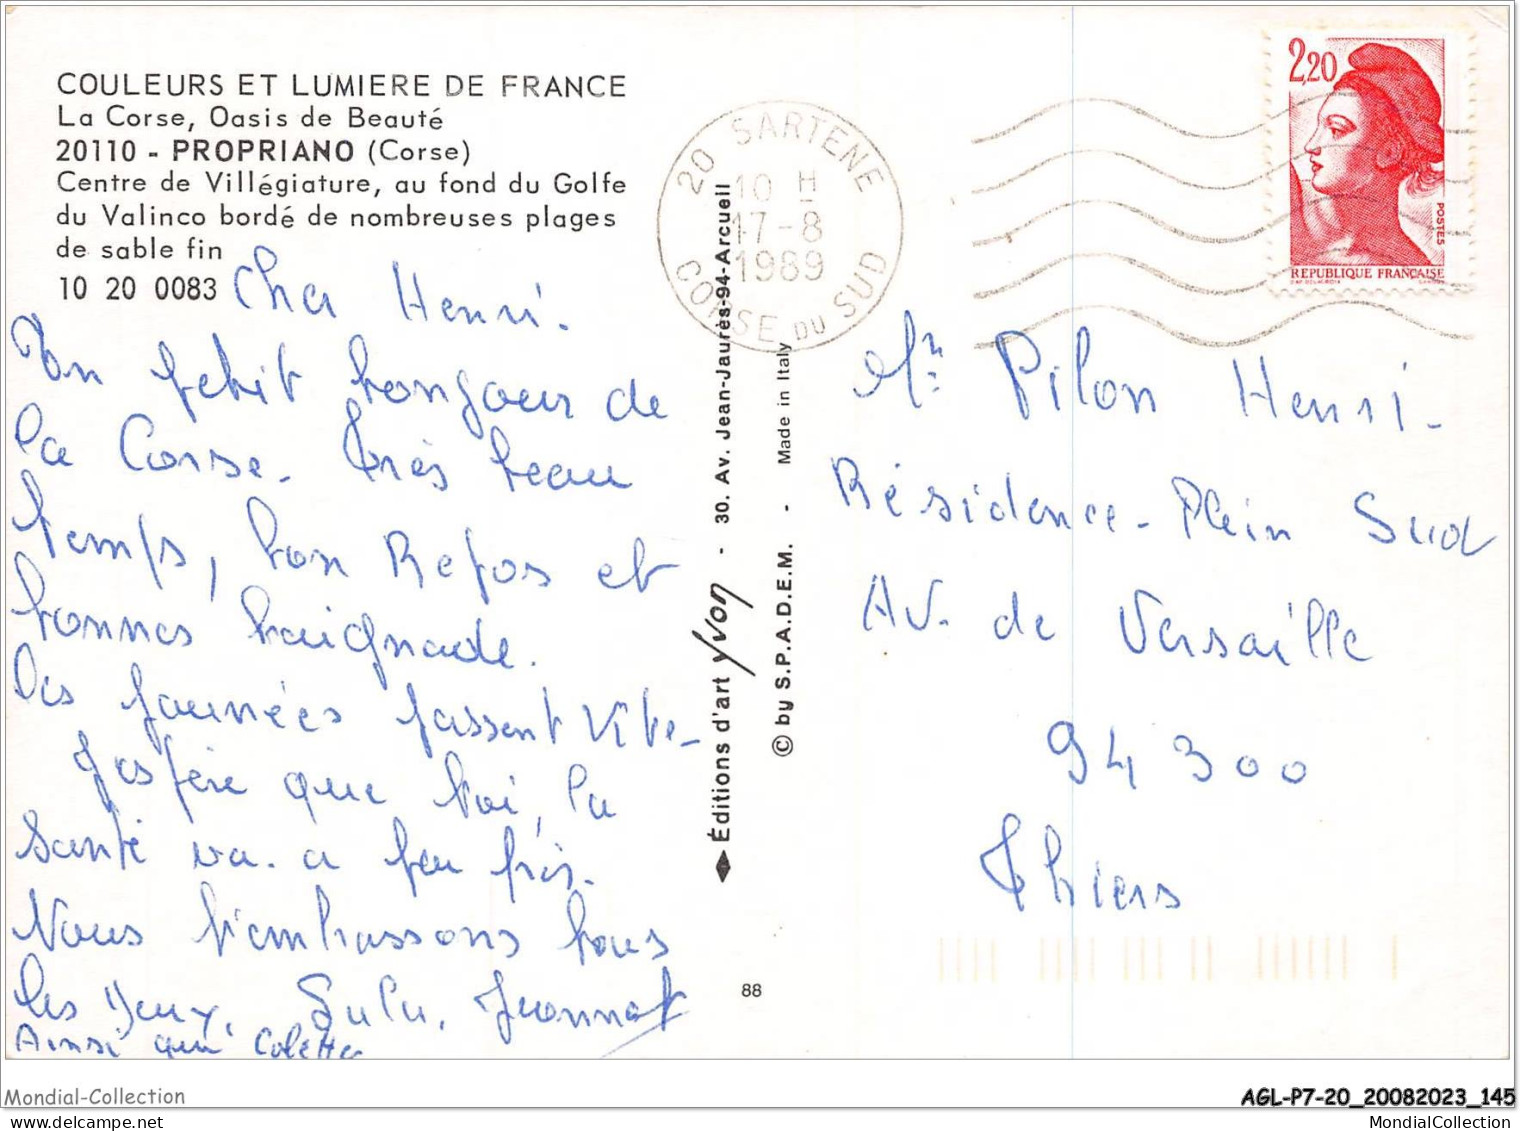 COULEURS ET LUMIERE DE FRANCE
La Corse, Oasis de Beauté
20110 - PROPRIANO (Corse)
Centre de Villégiature, au fond du Golfe
du Valinco bordé de nombreuses plages
de sable fin
10 20 0083
Cher Henri.
Un petit bonjour de
la Corse. Très beau
temps, bon Repos et
bonnes baignade.
Les journées passent vite_
J'espère que toi, la
Santé va. a peu près.
Nous t'embrassons tous
les Deux. Lulu, Jeannot
Ainsi que Colette
◆ Éditions d'art Yvon - 30. Av. Jean-Jaurès-94-Arcueil
© by S.P.A.D.E.M. - Made in Italy
88
20 SARTENE
10 H
17-8
1989
CORSE DU SUD
2,20
POSTES
REPUBLIQUE FRANÇAISE
Mr Pilon Henri.
Résidence - Plein Sud
AV. de Versaille
94 300
Thiers
Mondial-Collection
AGL-P7-20_20082023_145
MondialCollection